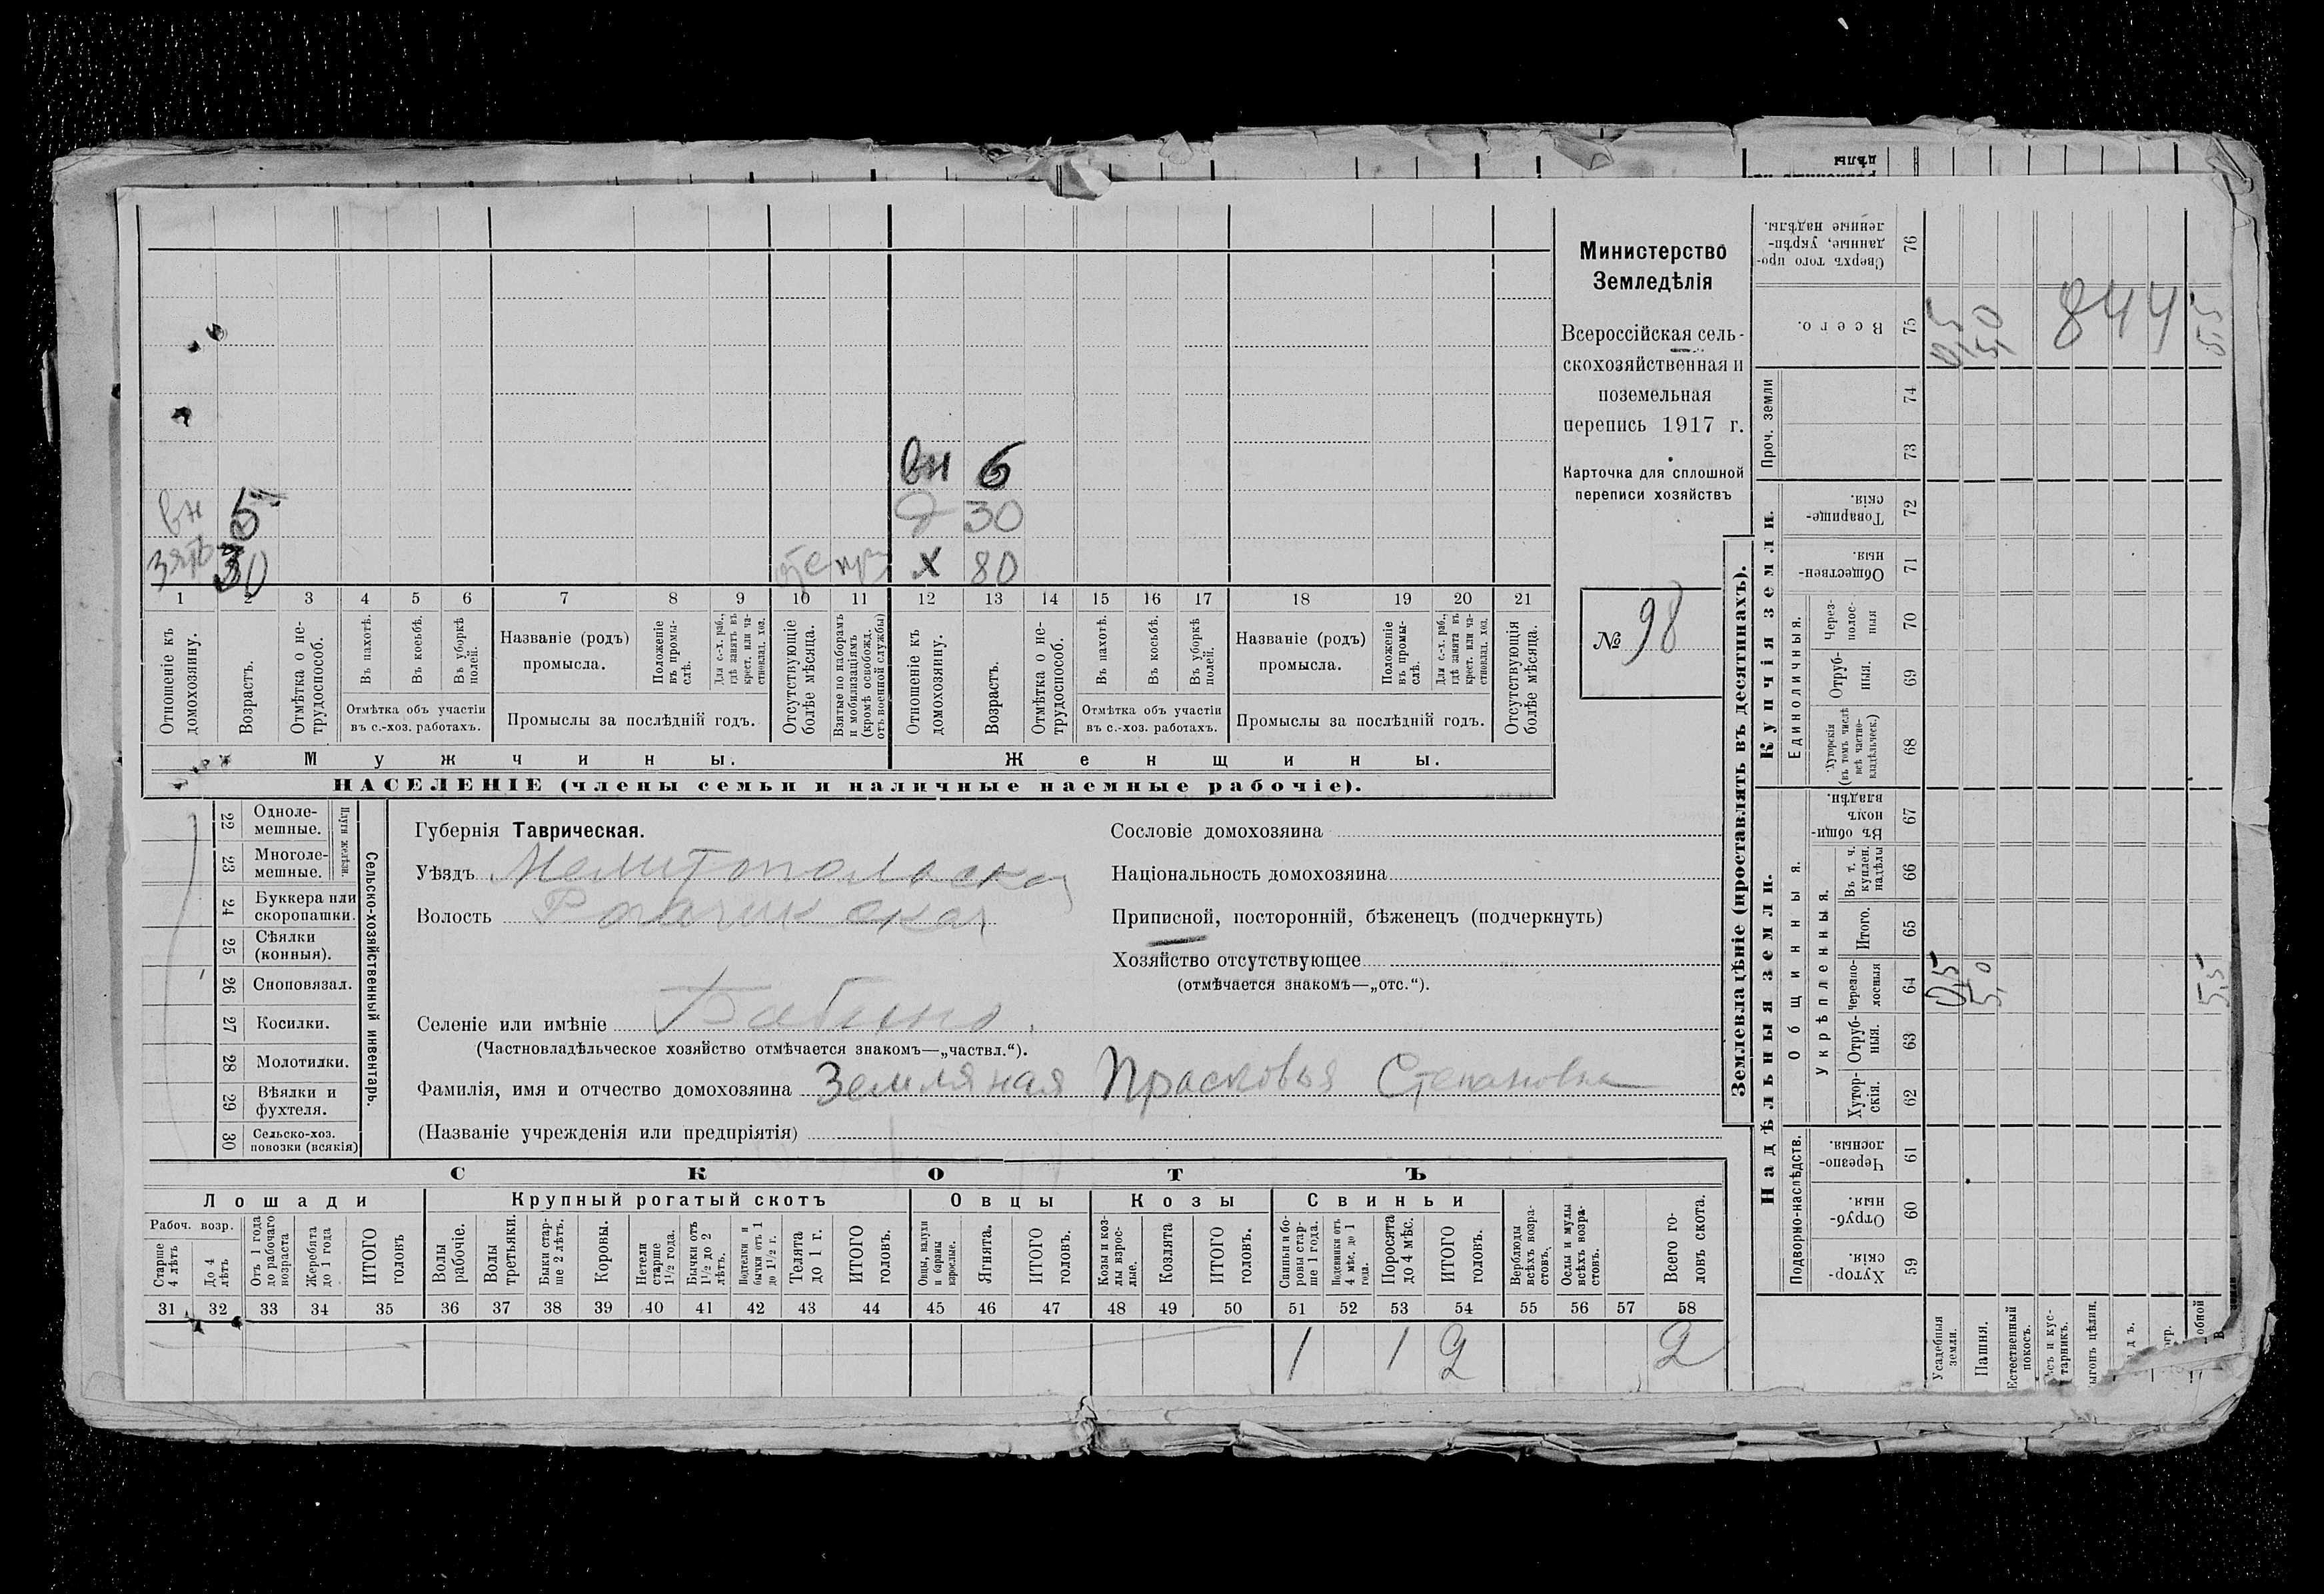 вн 6
вн 5
д 30
зять 30
х 80
1 2 3 4 5 6 7 8 9 10 11 12 13 14 15 16 17 18 19 20 21
Отношеніе къ домохозяину.
Возрастъ.
Отмѣтка о не-
трудоспособ.
Въ пахотѣ.
Въ косьбѣ.
Въ уборкѣ полей.
Отмѣтка объ участіи
въ с.-хоз. работахъ.
Названіе (родъ)
промысла.
Положеніе
въ промы-
слѣ.
Для с.-х. раб.,
гдѣ занятъ въ
крест. или ча-
стновлад. хоз.
Промыслы за послѣдній годъ.
Отсутствующіе
болѣе мѣсяца.
Взятые по наборамъ
и мобилизаціямъ
(кромѣ освобожд.
отъ военной службы)
Отношеніе къ
домохозяину.
Возрастъ.
Отмѣтка о не-
трудоспособ.
Въ пахотѣ.
Въ косьбѣ.
Въ уборкѣ
полей.
Отмѣтка объ участіи
въ с.-хоз. работахъ.
Названіе (родъ)
промысла.
Положеніе
въ промы-
слѣ.
Для с.-х. раб.,
гдѣ занята въ
крест. или ча-
стновлад. хоз.
Промыслы за послѣдній годъ.
Отсутствующія
болѣе мѣсяца.
Мужчины.
Женщины.
НАСЕЛЕНІЕ (члены семьи и наличные наемные рабочіе).
Министерство
Земледѣлія
Всероссійская сель-
скохозяйственная и
поземельная
перепись 1917 г.
Карточка для сплошной
переписи хозяйствъ
№ 98
22 Одноле-
мешные.
23 Многоле-
мешные.
Плуги желѣзн.
24 Буккера или
скоропашки.
25 Сѣялки
(конныя).
26 Сноповязал.
27 Косилки.
28 Молотилки.
29 Вѣялки и
фухтеля.
30 Сельско-хоз.
повозки (всякія)
Сельско-хозяйственный инвентарь.
Губернія Таврическая.
Уѣздъ Мелитопольскій
Волость Рогачикская
Селеніе или имѣніе Бабино.
(Частновладѣльческое хозяйство отмѣчается знакомъ—„частвл.“).
Фамилія, имя и отчество домохозяина Земляная Прасковья Степановна
(Названіе учрежденія или предпріятія)
Сословіе домохозяина
Національность домохозяина
Приписной, посторонній, бѣженецъ (подчеркнуть)
Хозяйство отсутствующее
(отмѣчается знакомъ—„отс.“).
СКОТЪ
Лошади
Крупный рогатый скотъ
Овцы
Козы
Свиньи
Рабоч. возр.
Старше
4 лѣтъ
До 4
лѣтъ
Отъ 1 года
до рабочаго
возраста
Жеребята
до 1 года
ИТОГО
головъ
Волы
рабочіе.
Волы
третьяки.
Быки стар-
ше 2 лѣтъ.
Коровы.
Нетели
старше
1½ года.
Бычки отъ
1½ до 2
лѣтъ.
Подтелки и
бычки отъ 1
до 1½ г.
Телята
до 1 г.
ИТОГО
головъ.
Овцы, валухи
и бараны
взрослые.
Ягнята.
ИТОГО
головъ.
Козы и коз-
лы взрос-
лые.
Козлята
ИТОГО
головъ.
Свиньи и бо-
ровы стар-
ше 1 года.
Подсвинки отъ
4 мѣс. до 1
года.
Поросята
до 4 мѣс.
ИТОГО
головъ.
Верблюды
всѣхъ возра-
стовъ.
Ослы и мулы
всѣхъ возра-
стовъ.
Всего го-
ловъ скота.
31 32 33 34 35 36 37 38 39 40 41 42 43 44 45 46 47 48 49 50 51 52 53 54 55 56 57 58
1 1 2 2
Землевладѣніе (проставлять въ десятинахъ).
Надѣльныя земли.
Купчія земли.
Проч. земли
Подворно-наслѣдств.
Общинныя.
Укрѣпленныя.
Единоличныя.
Сверхъ того про-
данные, укрѣп-
ленные надѣлы.
76
Всего.
75
0,5
5,0
844
5,5
74
73
Товарище-
скія.
72
Обществен-
ныя.
71
Через-
полос-
ныя
70
Отруб-
ныя.
69
Хуторскія
(въ томъ числѣ
всѣ частно-
владѣльческ.)
68
Въ общин-
номъ
владѣн.
67
Въ т. ч.
куплен.
надѣлы
66
Итого.
65
Черезпо-
лосныя
64
0,5
5,0
5,5
Отруб-
ныя.
63
Хутор-
скія.
62
Черезпо-
лосныя.
61
Отруб-
ныя.
60
Хутор-
скія.
59
Усадебныя
земли.
Пашня.
Естественный
покосъ.